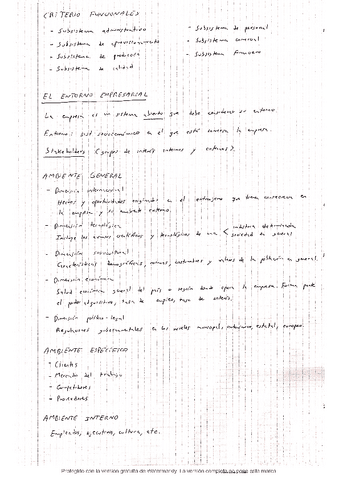 CRITERIO FUNCIONALES
- Subsistema administrativo
- Subsistema de aprovisionamiento
- Subsistema de producción
- Subsistema de calidad
- Subsistema de personal
- Subsistema comercial
- Subsistema financiero
EL ENTORNO EMPRESARIAL
La empresa es un sistema abierto que debe considerar su entorno.
Entorno: sist socioeconómico en el que está inmersa la empresa.
Stakeholders: (grupos de interés internos y externos).
AMBIENTE GENERAL
- Dimensión internacional
Hechos y oportunidades originados en el extranjero que tienen consecuencias en
la empresa y el ambiente externo.
- Dimensión tecnológica
Incluye los avances científicos y tecnológicos de una < industria determinada
sociedad en general
- Dimensión sociocultural
Características demográficas, normas, costumbres y valores de la población en general.
- Dimensión económica
Salud económica general del país o región donde opera la empresa. Forma parte
el poder adquisitivo, tasa de empleo, tasa de interés.
- Dimensión político-legal
Regulaciones gubernamentales en los niveles municipal, autonómico, estatal, europeo.
AMBIENTE ESPECÍFICO
- Clientes
- Mercado del trabajo
- Competidores
- Proveedores
AMBIENTE INTERNO
Empleados, ejecutivos, cultura, etc.
Protegido con la versión gratuita de Watermarkly. La versión completa no pone esta marca.